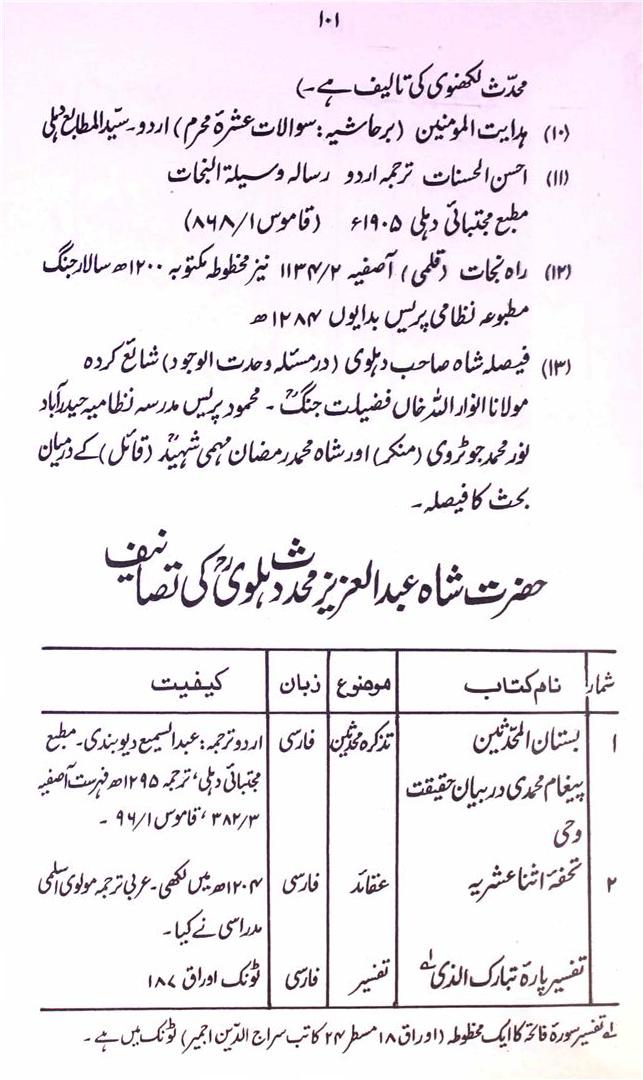 ۱۰۱
محدّث لکھنوی کی تالیف ہے۔)
(۱۰) ہدایت المومنین (برحاشیہ: سوالات عشرۂ محرم) اردو۔ سیّدالمطابع دہلی
(۱۱) احسن الحسنات ترجمہ اردو رسالہ وسیلۃ النجات
مطبع مجتبائی دہلی ۱۹۰۵ء (قاموس ۸۶۸/۱)
(۱۲) راہ نجات (قلمی) آصفیہ ۱۱۳۴/۲ نیز مخطوطہ مکتوبہ ۱۲۰۰ھ سالار جنگ
مطبوعہ نظامی پریس بدایوں ۱۲۸۴ھ
(۱۳) فیصلہ شاہ صاحب دہلوی (در مسئلہ وحدت الوجود) شائع کردہ
مولانا انوار اللہ خاں فضیلت جنگؒ۔ محمود پریس مدرسہ نظامیہ حیدرآباد
نور محمد جوٹروی (منکر) اور شاہ محمد رمضان مہمی شہیدؒ (قائل) کے درمیان
بحث کا فیصلہ۔
حضرت شاہ عبدالعزیز محدث دہلویؒ کی تصانیف
شمار نام کتاب موضوع زبان کیفیت
۱ بستان المحدّثین تذکرہ محدثین فارسی اردو ترجمہ: عبدالسمیع دیوبندی۔ مطبع
پیغام محمدی در بیان حقیقت مجتبائی دہلی، ترجمہ ۱۲۹۵ھ فہرست آصفیہ
وحی ۳۸۲/۳، قاموس ۹۶/۱ ۔
۲ تحفۂ اثنا عشریہ عقائد فارسی ۱۲۰۴ھ میں لکھی۔ عربی ترجمہ مولوی اسلمی
مدراسی نے کیا۔
تفسیر پارۂ تبارک الذی لے تفسیر فارسی ٹونک اوراق ۱۸۷
لے تفسیر سورۂ فاتحہ کا ایک مخطوطہ (اوراق ۱۸ مسطر ۲۴ کاتب سراج الدّین اجمیر) ٹونک میں ہے۔